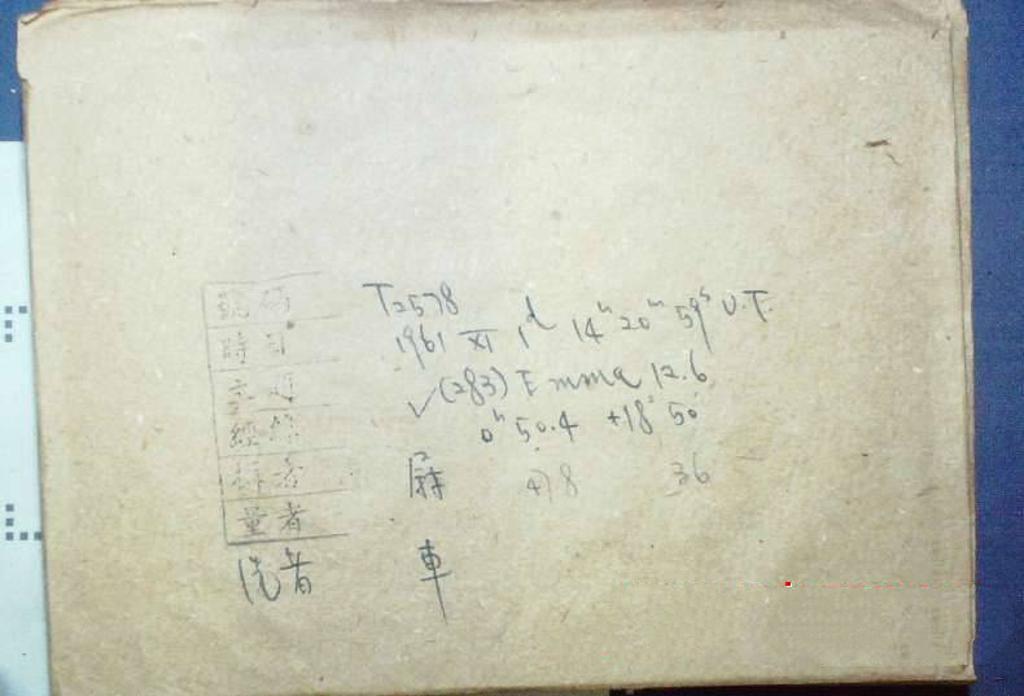 號碼 T2578
時日 1961 XI 1d 14h 20m 59s U.T.
✓(283) Emma 12.6
經緯 0h 50.4 +18° 50'
屛 478 36
量者
洗者 車